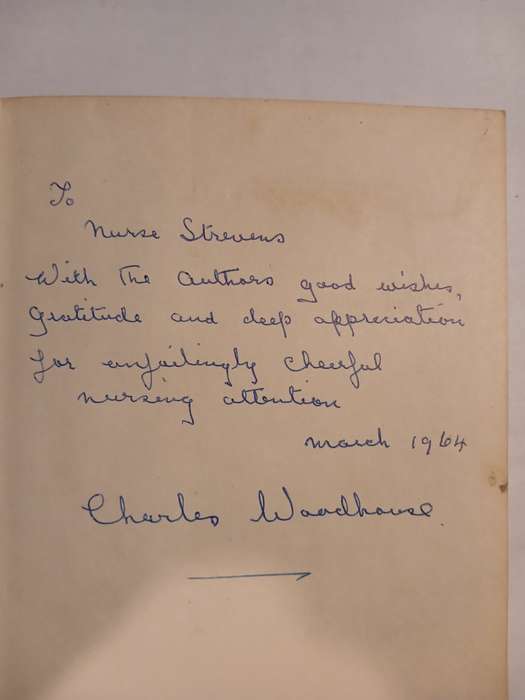 To
Nurse Strevens
With the Authors good wishes,
Gratitude and deep appreciation
for unfailingly cheerful
nursing attention
March 1964
Charles Woodhouse.